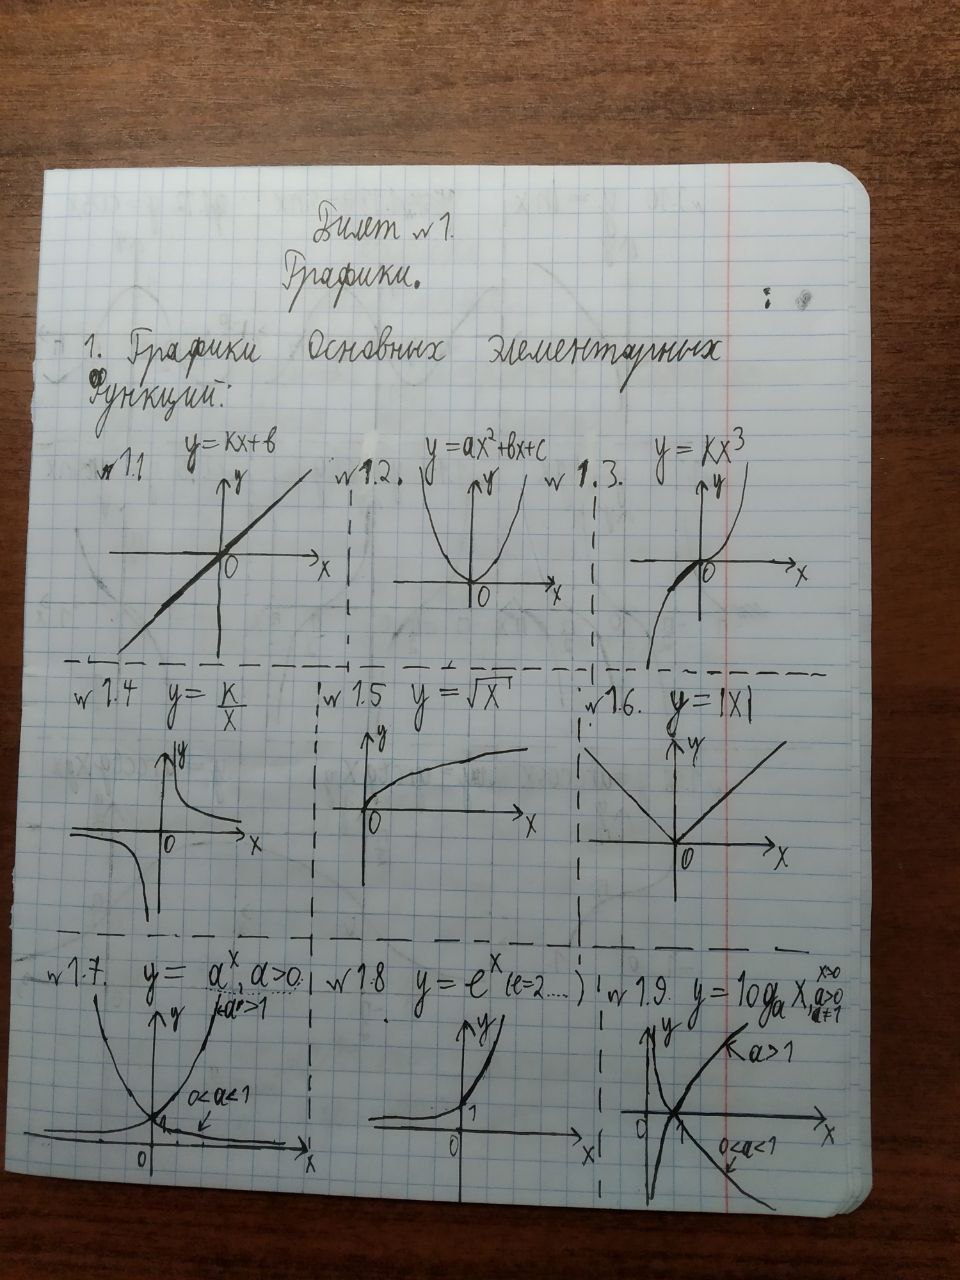 Билет №1.
Графики.
1. Графики Основных Элементарных
Функций:
№1.1 y=kx+b
y
0
x
№1.2. y=ax²+bx+c
y
0
x
№1.3. y=kx³
y
0
x
№1.4 y=k/x
y
0
x
№1.5 y=√x
y
0
x
№1.6. y=|x|
y
0
x
№1.7. y=aˣ, a>0
a>1
y
0<a<1
1
0
x
№1.8 y=eˣ (e=2....)
y
1
0
x
№1.9. y=logₐx, x>0
a>0
a≠1
y
a>1
0
1
x
0<a<1